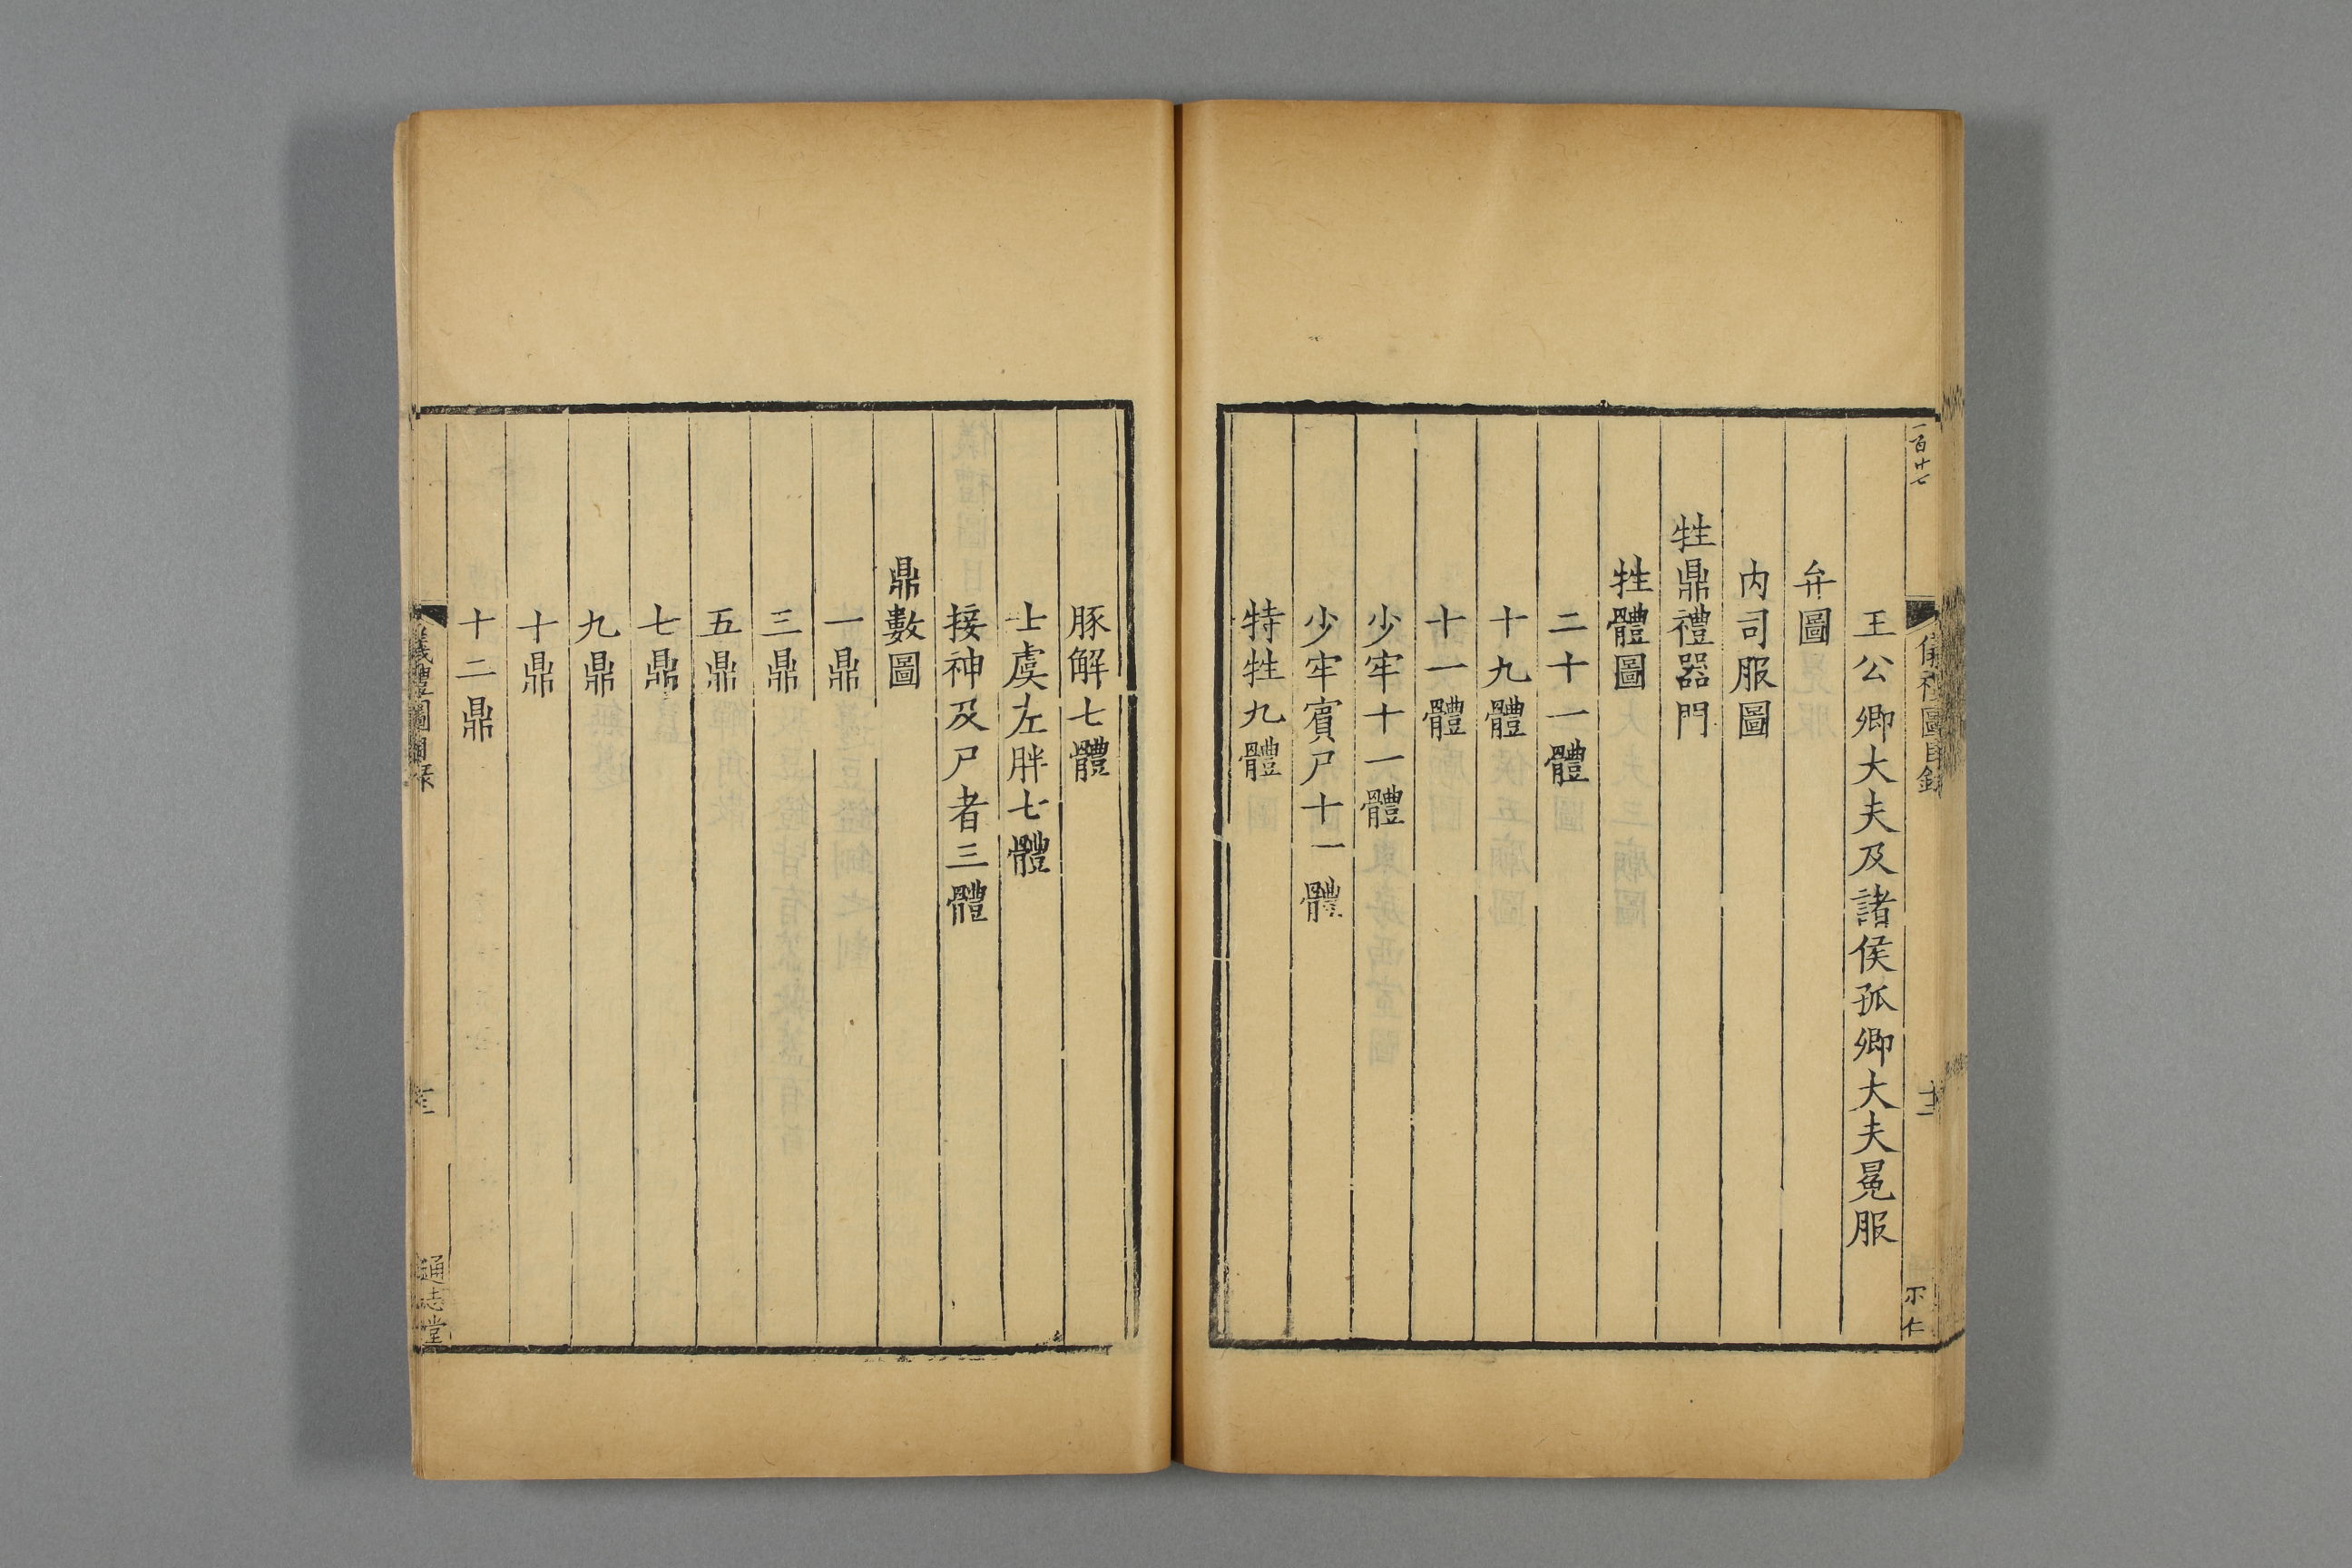 一百廿七
儀禮圖目錄
十三
王公卿大夫及諸侯孤卿大夫冕服
弁圖
内司服圖
牲鼎禮器門
牲體圖
二十一體
十九體
十一體
少牢十一體
少牢賓尸十一體
特牲九體
豚解七體
士虞左胖七體
接神及尸者三體
鼎數圖
一鼎
三鼎
五鼎
七鼎
九鼎
十鼎
十二鼎
儀禮圖目錄
通志堂